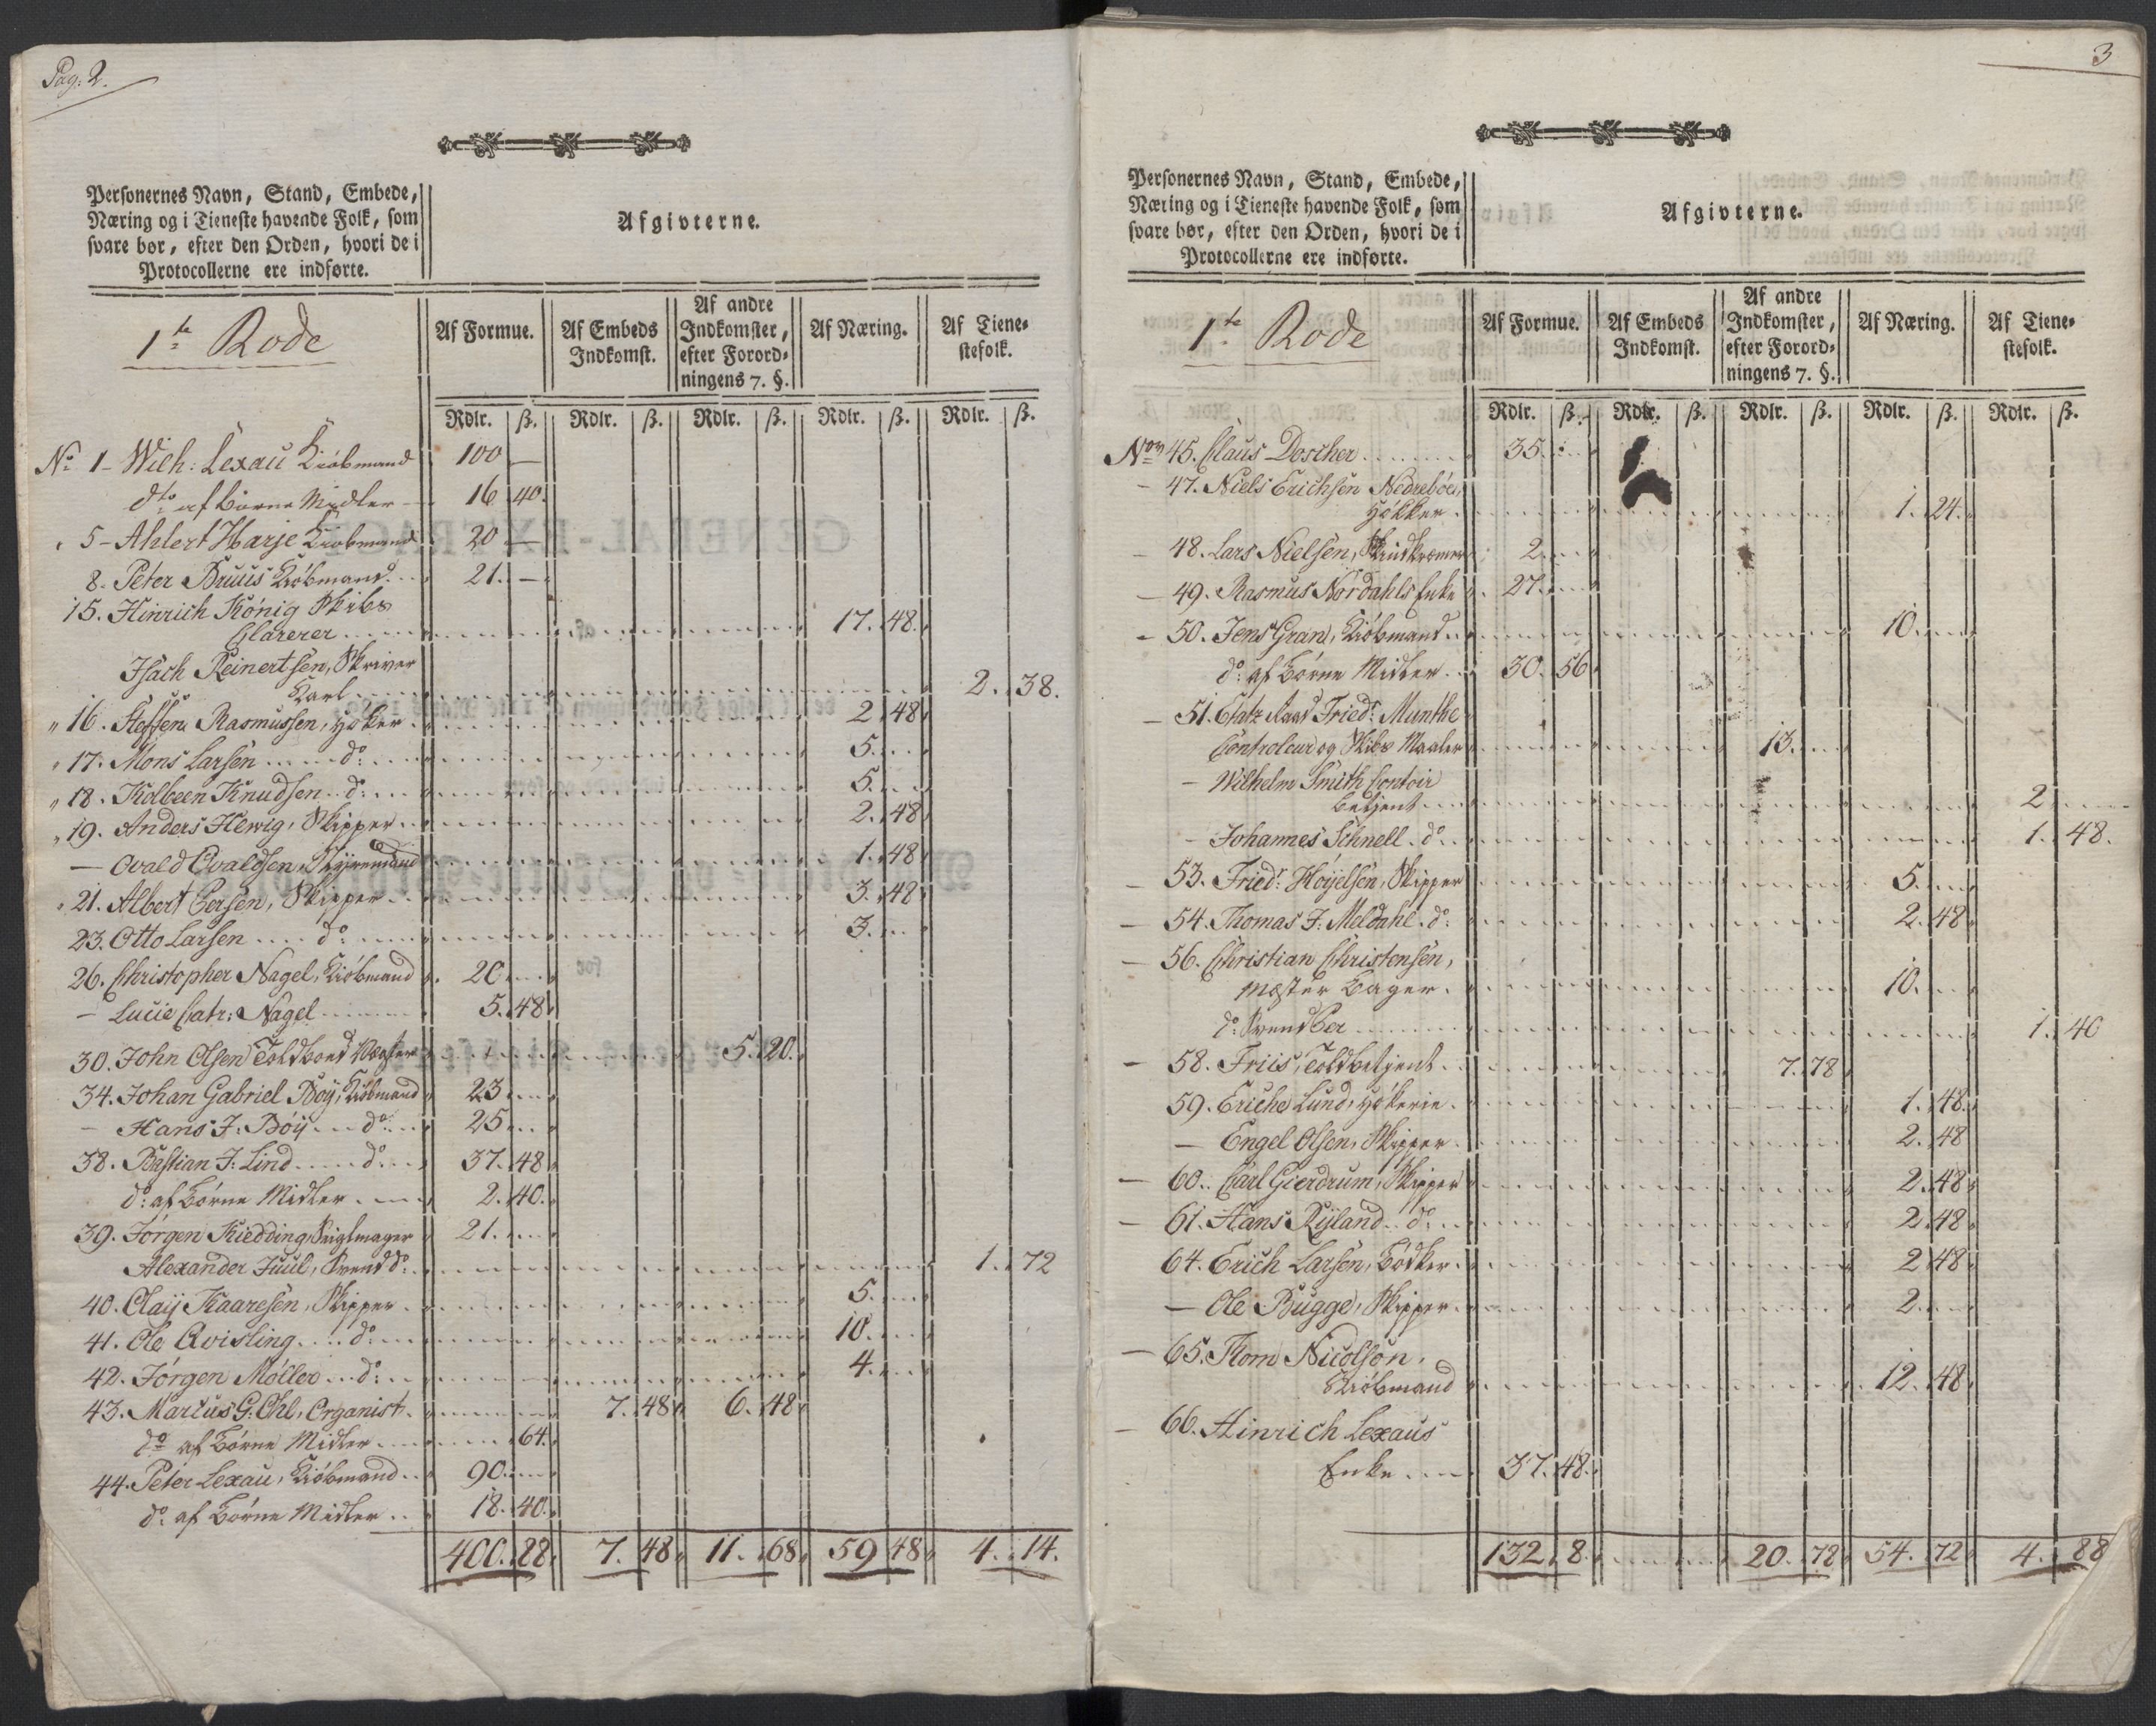 Pag: 2.
Personernes Navn, Stand, Embede,
Næring og i Tieneste havende Folk, som
svare bør, efter den Orden, hvori de i
Protocollerne ere indførte.
Afgivterne.
1te Rode
Af Formue.
Af Embeds
Indkomst.
Af andre
Indkomster,
efter Forord-
ningens 7. §.
Af Næring.
Af Tiene-
stefolk.
Rdlr. ß. Rdlr. ß. Rdlr. ß. Rdlr. ß. Rdlr. ß.
No 1 - Wilh: Lexau Kiöbmand 100 —
dto af Börne Midler 16 40.
5 - Ahlert Harje Kiöbmand 20 —
8. Peter Bruus Kiöbmand 21. —
15. Hinrich König Skibs
Clarerer 17. 48.
Isach Reinertsen, Skriver
Karl 2. 38.
" 16. Steffen Rasmussen, Höker 2. 48.
" 17. Mons Larsen do: 5.
" 18. Kolbeen Knudsen do: 5.
" 19. Anders Hewig, Skipper 2. 48.
— Ovald Ovaldsen, Styremand 1. 48.
" 21. Albert Persen, Skipper 3. 48.
23. Otto Larsen do: 3.
26. Christopher Nagel, Kiöbmand 20
- Lucie Catr: Nagel 5. 48.
30. John Olsen Toldboed Vægter 5. 20.
34. Johan Gabriel Böy, Kiöbmand 23
- Hans J: Böy do: 25
38. Bastian J: Lind do: 37. 48.
do: af Börne Midler 2. 40.
39. Jörgen Kiedding, Seiglmager 21.
Alexander Juul, Svend do: 1. 72
40. Olaij Kaaresen, Skipper 5.
41. Ole Qvisling do: 10.
42. Jörgen Möller do: 4.
43. Marcus G: Ohl, Organist 7. 48. 6. 48.
do af Börne Midler 64.
44. Peter Lexau, Kiöbmand 90.
do: af Börne Midler 18. 40.
400. 88. 7. 48. 11. 68. 59 48. 4. 14.
3
Personernes Navn, Stand, Embede,
Næring og i Tieneste havende Folk, som
svare bør, efter den Orden, hvori de i
Protocollerne ere indførte.
Afgivterne.
1te Rode
Af Formue.
Af Embeds
Indkomst.
Af andre
Indkomster,
efter Forord-
ningens 7. §.
Af Næring.
Af Tiene-
stefolk.
Rdlr. ß. Rdlr. ß. Rdlr. ß. Rdlr. ß. Rdlr. ß.
No 45. Claus Doscher 35.
- 47. Niels Erichsen Nedreböe,
Hökker 1. 24.
- 48. Lars Nielsen, Skindkræmer 2.
- 49. Rasmus Nordahls Enke 27.
- 50. Jens Gran, Kiöbmand 10.
do: af Börne Midler 30. 56.
- 51. Friedr: Munthe
Controleur og Skibs Maaler 13.
- Wilhelm Smith Contoir
Betjent 2.
- Johannes Schnell do 1. 48.
- 53. Friedr: Höyelsen, Skipper 5.
- 54. Thomas J: Meldahl do: 2. 48.
- 56. Christian Christensen,
Mester Bager 10.
do: Svend Per 1. 40
- 58. Friis, Toldbetjent 7. 78
59. Erich Lund, Hökerie 1. 48.
- Engel Olsen, Skipper 2. 48
- 60. Carl Gierdrum, Skipper 2. 48.
- 61. Hans Ryland do: 2. 48.
64. Erich Larsen, Bödker 2. 48.
- Ole Bugge, Skipper 2.
- 65. Thom Nicolson,
Kiöbmand 12. 48.
- 66. Hinrich Lexaus
Enke 37. 48.
132. 8. 20. 78. 54. 72. 4. 88